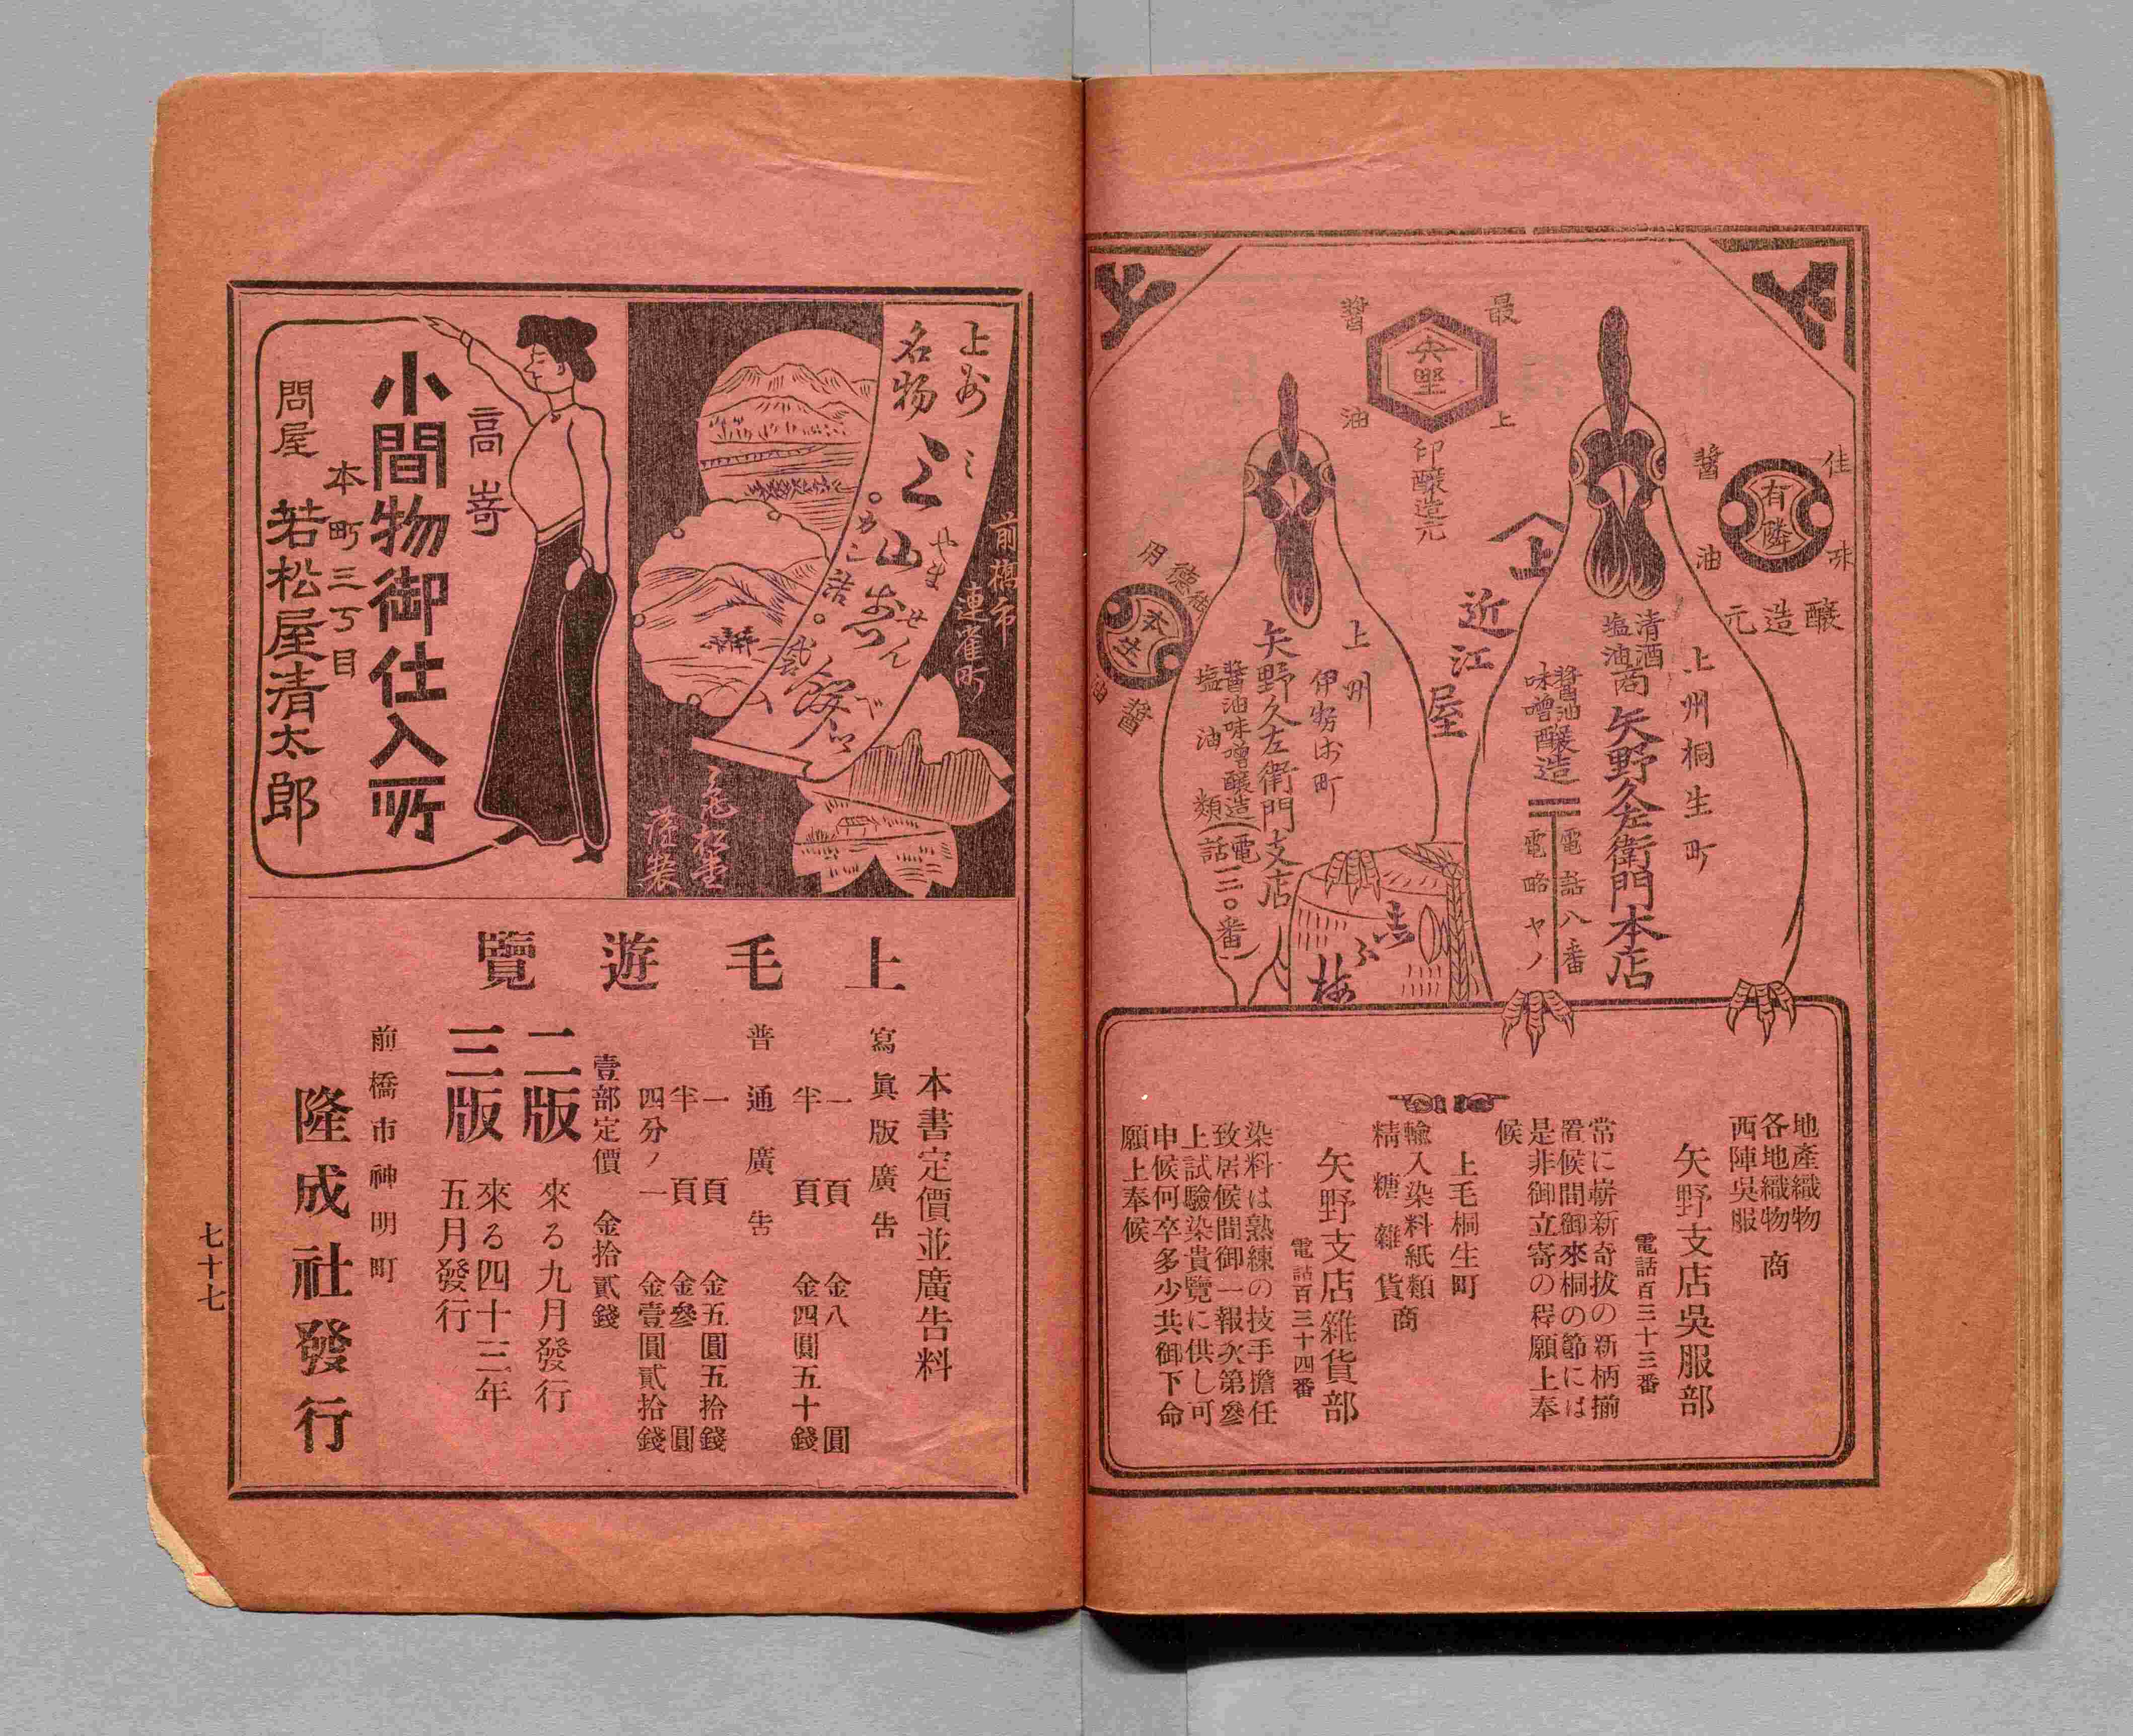 最上醬油
矢野
印醸造元
佳味醬油
有隣
醸造元
上
近江屋
上州桐生町
清酒
塩油商
矢野久左衛門本店
醬油
味噌醸造
電話八番
電略ヤノ
上州
伊勢崎町
矢野久左衛門支店
醬油味噌醸造
塩油類
(電話一三〇番)
徳用
醬油
本生
地產織物
各地織物商
西陣吳服
矢野支店吳服部
電話百三十三番
常に嶄新奇拔の新柄揃
置候間御來桐の節には
是非御立寄の程願上奉
候
上毛桐生町
輸入染料紙類
精糖雜貨商
矢野支店雜貨部
電話百三十四番
染料は熟練の技手擔任
致居候間御一報次第參
上試驗染貴覽に供し可
申候何卒多少共御下命
願上奉候
前橋市
連雀町
上州
名物
三山せんべい
高嵜
小間物御仕入所
本町三丁目
問屋
若松屋清太郎
上毛遊覽
本書定價並廣告料
寫眞版廣告
一頁 金八圓
半頁 金四圓五十錢
普通廣告
一頁 金五圓五拾錢
半頁 金參圓
四分ノ一 金壹圓貳拾錢
壹部定價 金拾貳錢
二版 來る九月發行
三版 來る四十三年
五月發行
前橋市神明町
隆成社發行
七十七